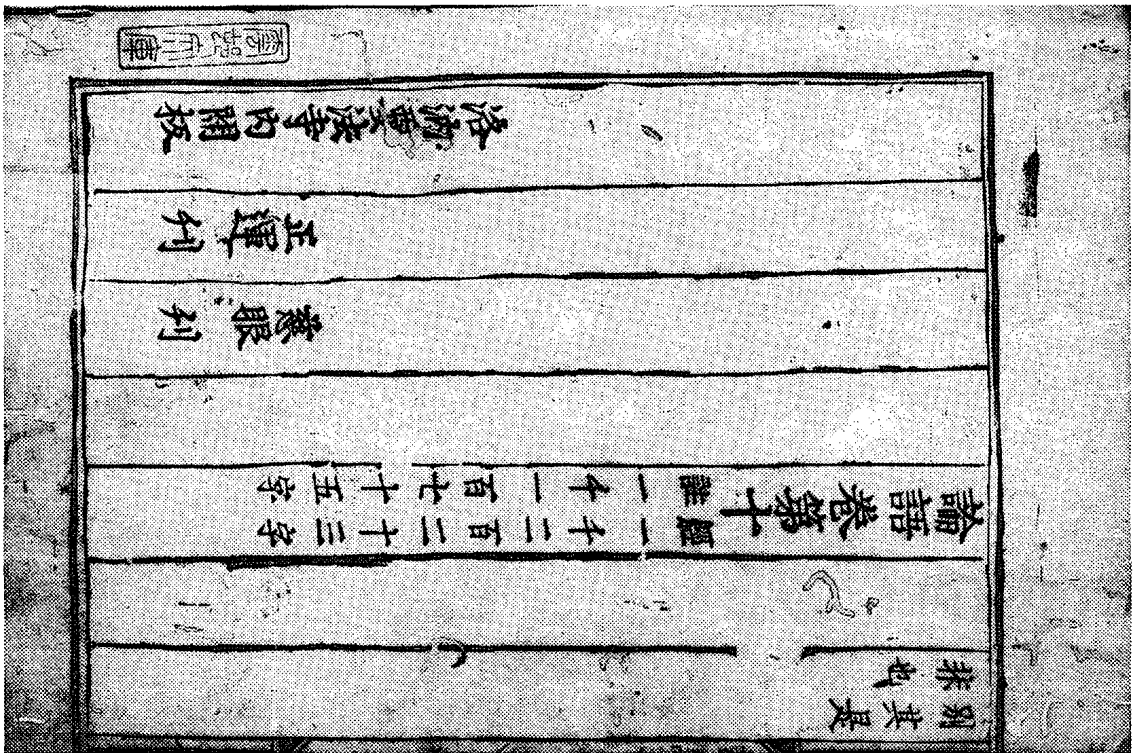 別其是
非也
論語卷第十
經一千二百二十三字
註一千一百七十五字
慈眼刊
正運刊
洛汭要法寺内開板
雲邨文庫